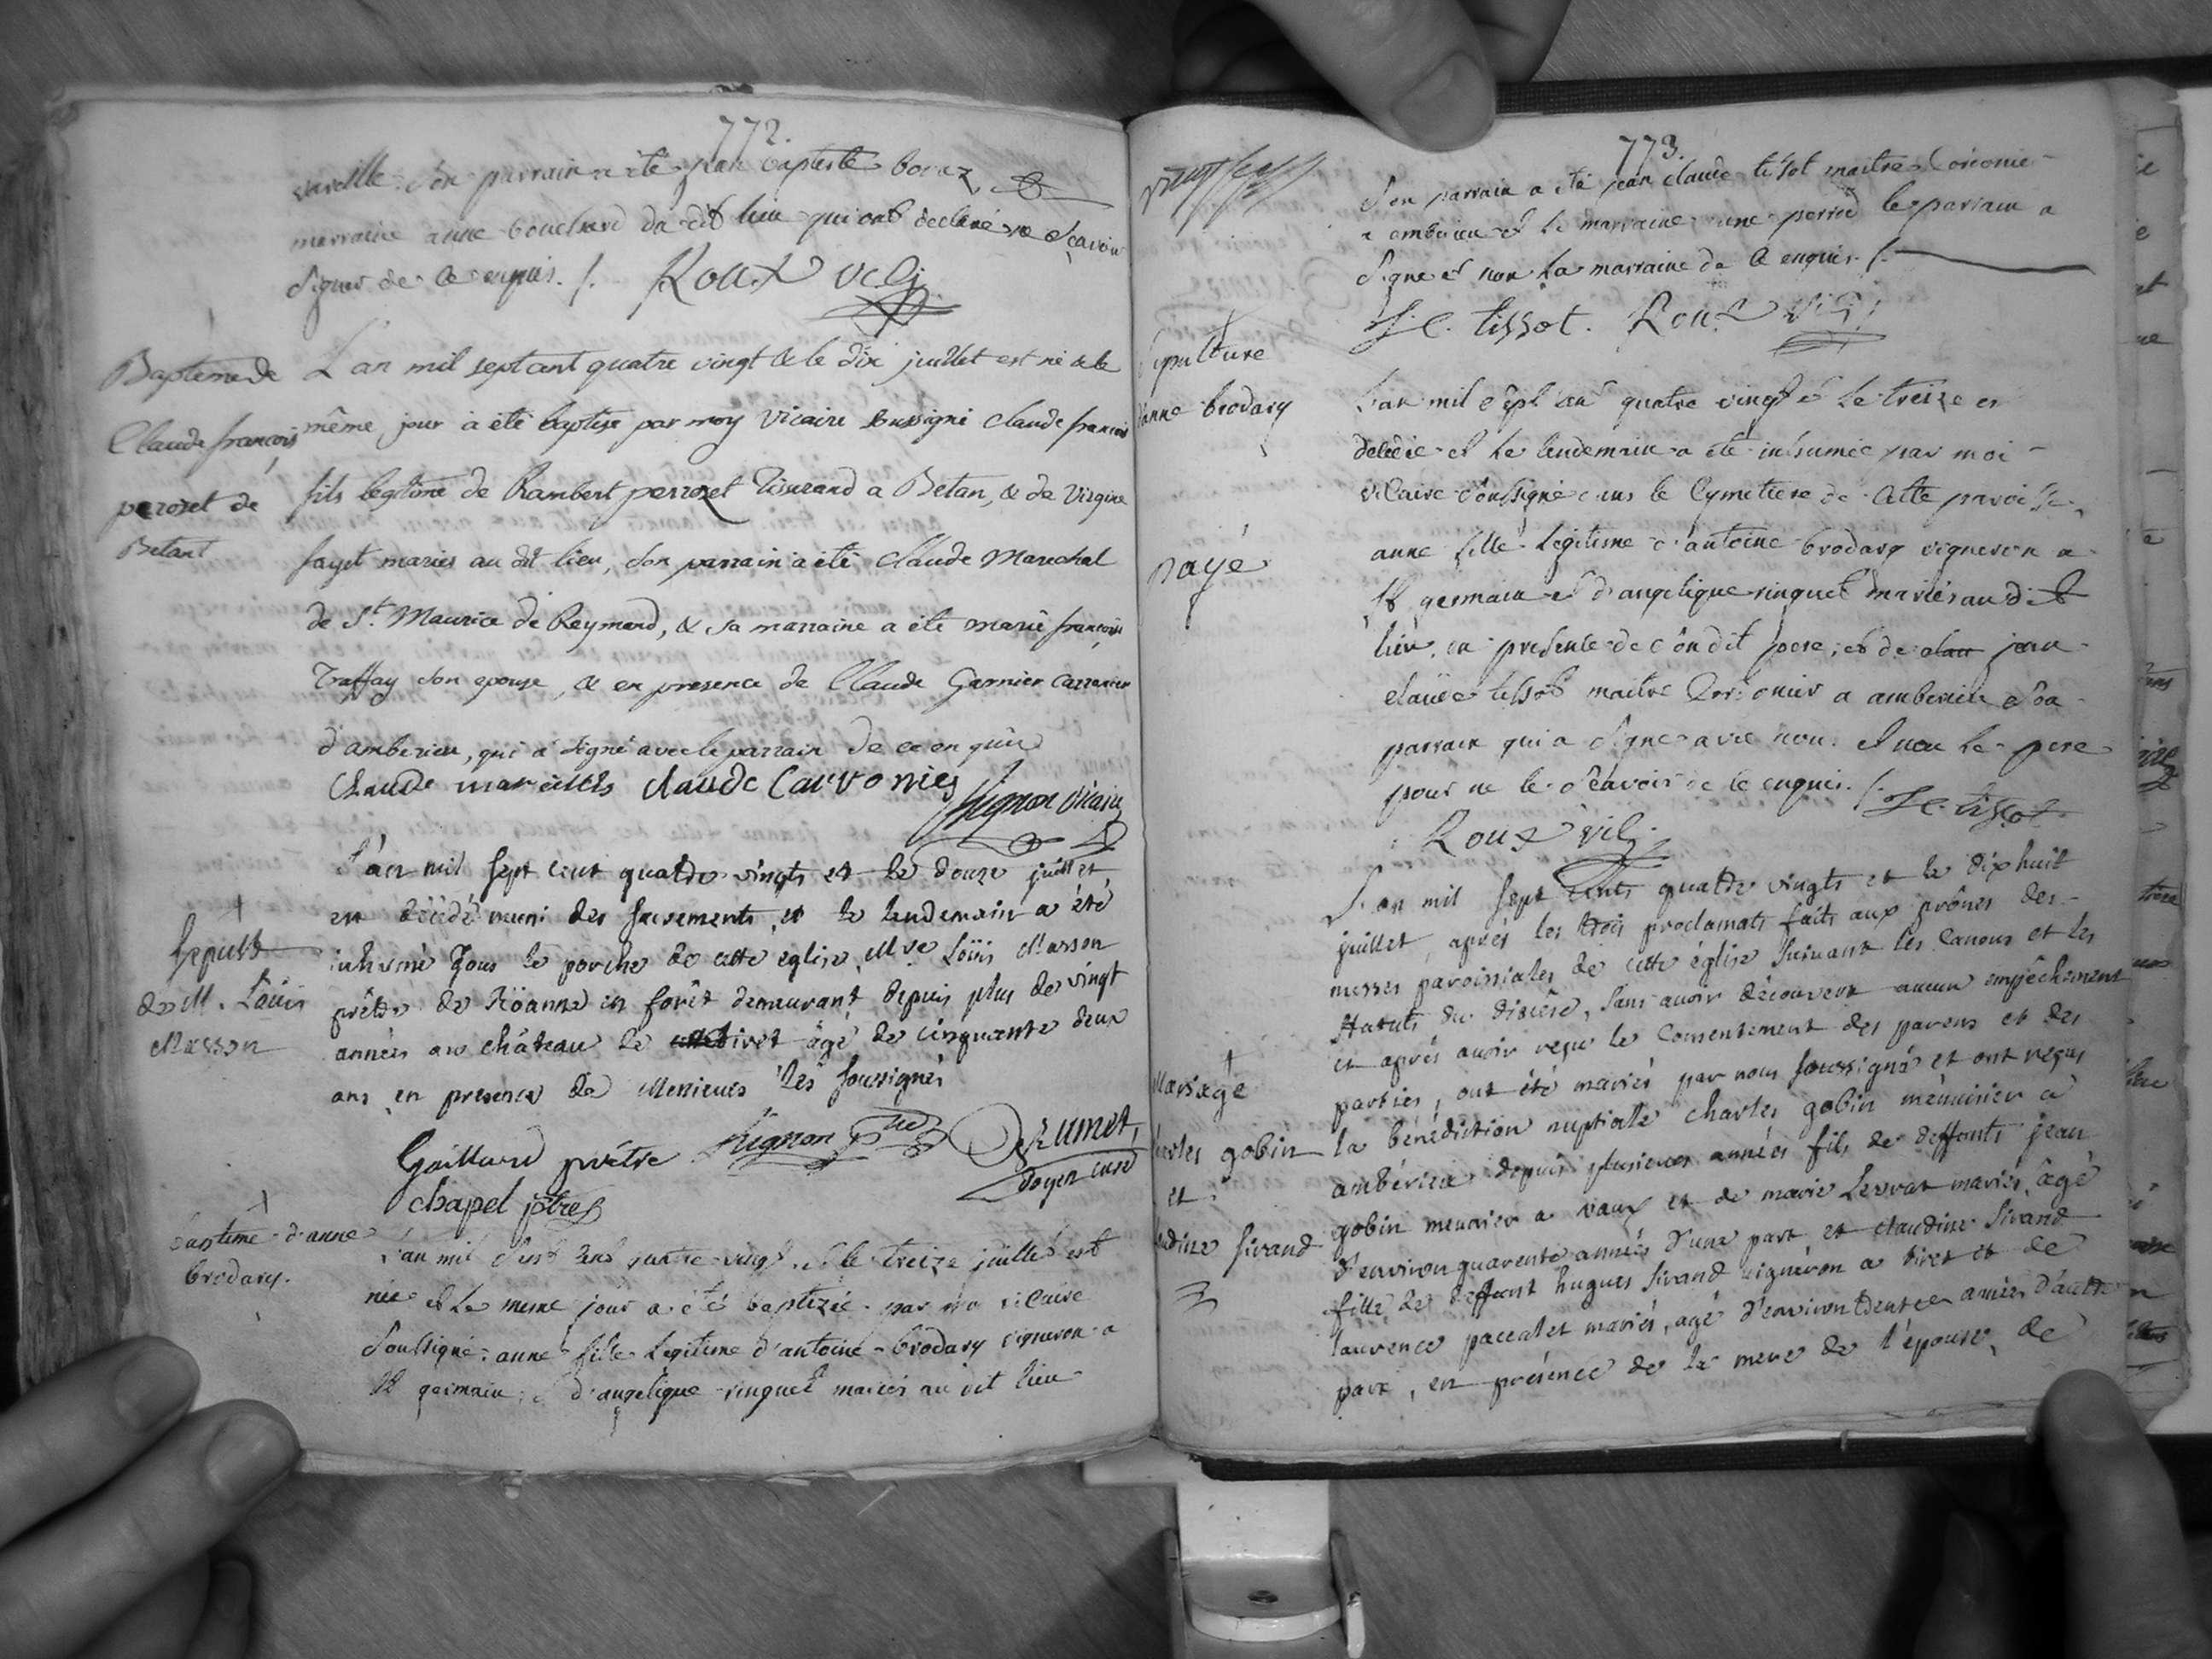 772.
son parrain a été jean baptiste borraz
marraine anne bouchard du dit lieu qui ont declaré ne scavoir
signer de ce enquis. /. Roux vic.
Baptême de
Claude françois
perozet de
Betant
L'an mil sept cent quatre vingt & le dix juillet est né & le
même jour à été baptisé par moy Vicaire soussigné Claude françois
fils legitime de Rambert perrozet tisserand a Betan, & de Virgine
fayet mariés au dit lieu, son parrain à été Claude Marechal
de St. Maurice de Reymend, & sa marraine a été marie françoise
Traffay son epouse, & en presence de Claude Garnier
d'amberieu, qui a signé avec le parrain de ce enquis
Claude claude Carronier
Hignon vicaire
L'an mil sept cent quatre vingts et le douze juillet
est décédé muni des sacrements, et le lendemain a été
inhumé sous le porche de cette eglise, Mre Loüis Masson
prêtre de Röanne en forêt demeurant depuis plus de vingt
années au château de tiret âgé de cinquante deux
ans, en presence de Messieurs les soussignés
Sepult
de M. Loüis
Masson
Gaillard prêtre Hignon Brumet,
doyen curé
chapel ptre
baptême d'anne
brodary.
L'an mil sept cent quatre vingt et le treize juillet est
née et le meme jour a été baptizée par moi vicaire
soussigné anne fille legitime d'antoine brodary vigneron a
st germain et d'angelique ringuet mariés au dit lieu
773.
son parrain a été jean claude tissot maitre
a amberieu et la marraine anne perrod le parrain a
signé et non la marraine de ce enquis /.
J. C. tissot. Roux vic.
Sepulture
d'anne brodary
payé
L'an mil sept cent quatre vingt et le treize est
decedée et le lendemain a été inhumée par moi
vicaire soussigné dans le Cymetiere de cette paroisse
anne fille legitime d'antoine brodary vigneron a
st germain et d'angelique ringuet mariés au dit
lieu. en presence de son dit pere, et de jean
claude tissot maitre a amberieu son
parrain qui a signé avec nous et non le pere
pour ne le scavoir de ce enquis. /. J. C. tissot
Roux vic.
Mariage
charles gobin
et
claudine sivand
L'an mil sept cents quatre vingts et le dix huit
juillet, après les trois proclamats faits aux prônes des
messes paroissiales de cette église suivant les Canons et les
statuts du diocèse, sans avoir découvert aucun empêchement
et après avoir reçu le Consentement des parens et des
parties, ont été mariés par nous soussigné et ont reçus
la bénédiction nuptiale charles gobin menuisier à
ambérieu depuis plusieurs années fils de deffunts jean
gobin meunier a vaux et de marie Lervat mariés, âgé
d'environ quarente années d'une part et claudine sivand
fille de deffunt hugues sivand vigneron a tiret et de
laurence paccalet mariés, agé d'environ trente années d'autre
part, en présence de la mere de l'épouse, de